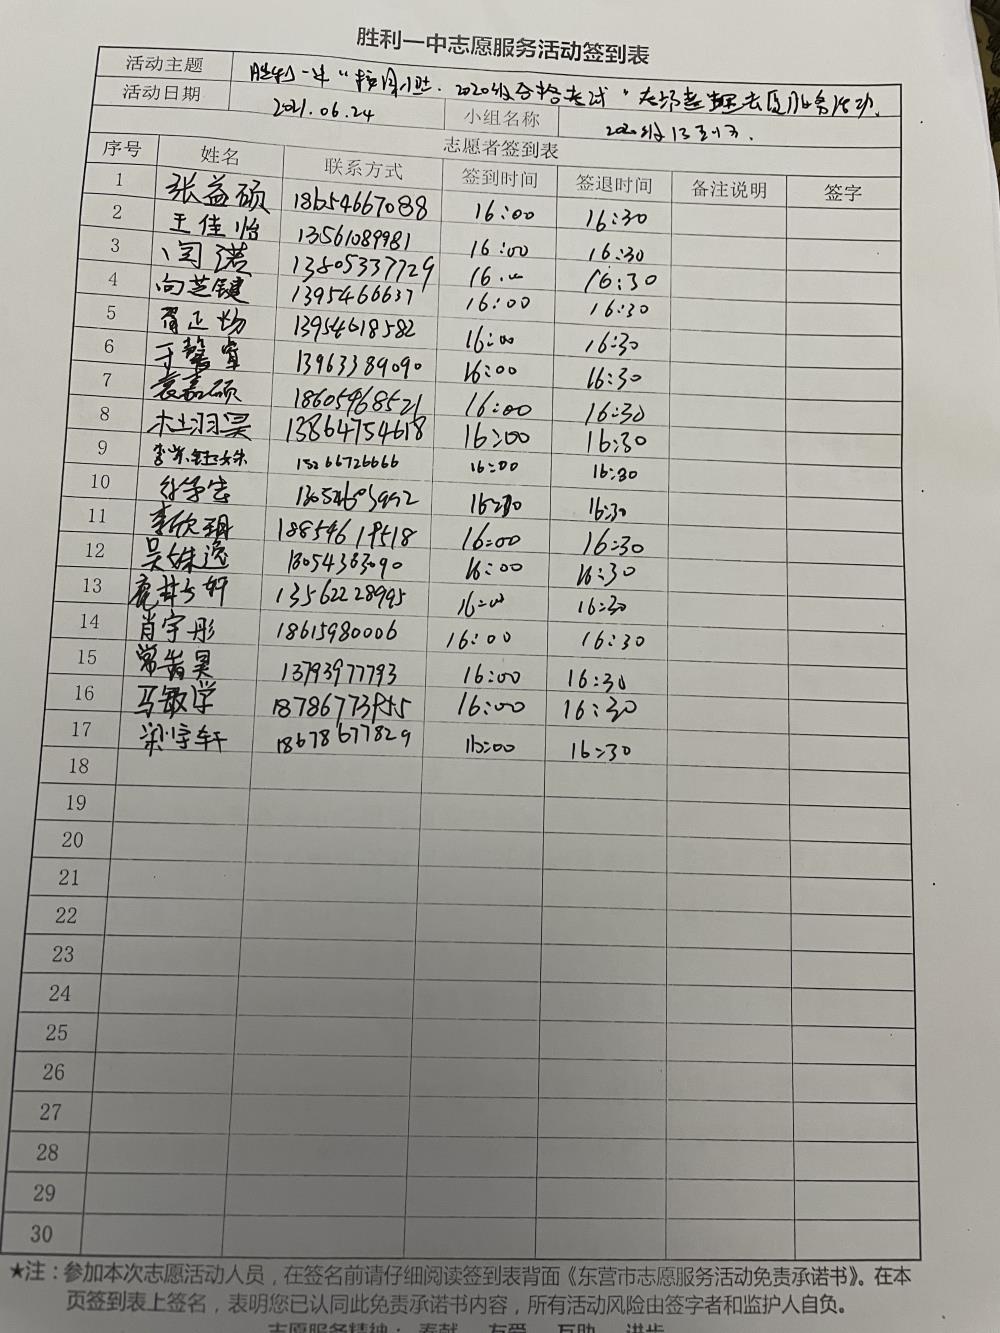 胜利一中志愿服务活动签到表
活动主题 胜利一中“校园小卫. 2020级合格考试”考场整理志愿服务活动.
活动日期 2021.06.24 小组名称 2020级13
志愿者签到表
序号 姓名 联系方式 签到时间 签退时间 备注说明 签字
1 张益硕 18654667088 16:00 16:30
2 王佳怡 13561089981 16:00 16:30
3 闫漪 13805337729 16:00 16:30
4 向芝键 1395466637 16:00 16:30
5 13954618582 16:00 16:30
6 于馨宜 13963389090 16:00 16:30
7 袁嘉硕 18605468521 16:00 16:30
8 杜羽昊 13864754618 16:00 16:30
9 15266726666 16:00 16:30
10 16:30
11 李欣玥 16:00 16:30
12 吴姝逸 16:00 16:30
13 13562228995 16:00 16:30
14 肖宇彤 18615980006 16:00 16:30
15 13793977793 16:00 16:30
16 马敏学 16:00 16:30
17 梁宇轩 18678677829 16:00 16:30
18
19
20
21
22
23
24
25
26
27
28
29
30
★注：参加本次志愿活动人员，在签名前请仔细阅读签到表背面《东营市志愿服务活动免责承诺书》。在本
页签到表上签名，表明您已认同此免责承诺书内容，所有活动风险由签字者和监护人自负。
志愿服务精神：奉献 友爱 互助 进步